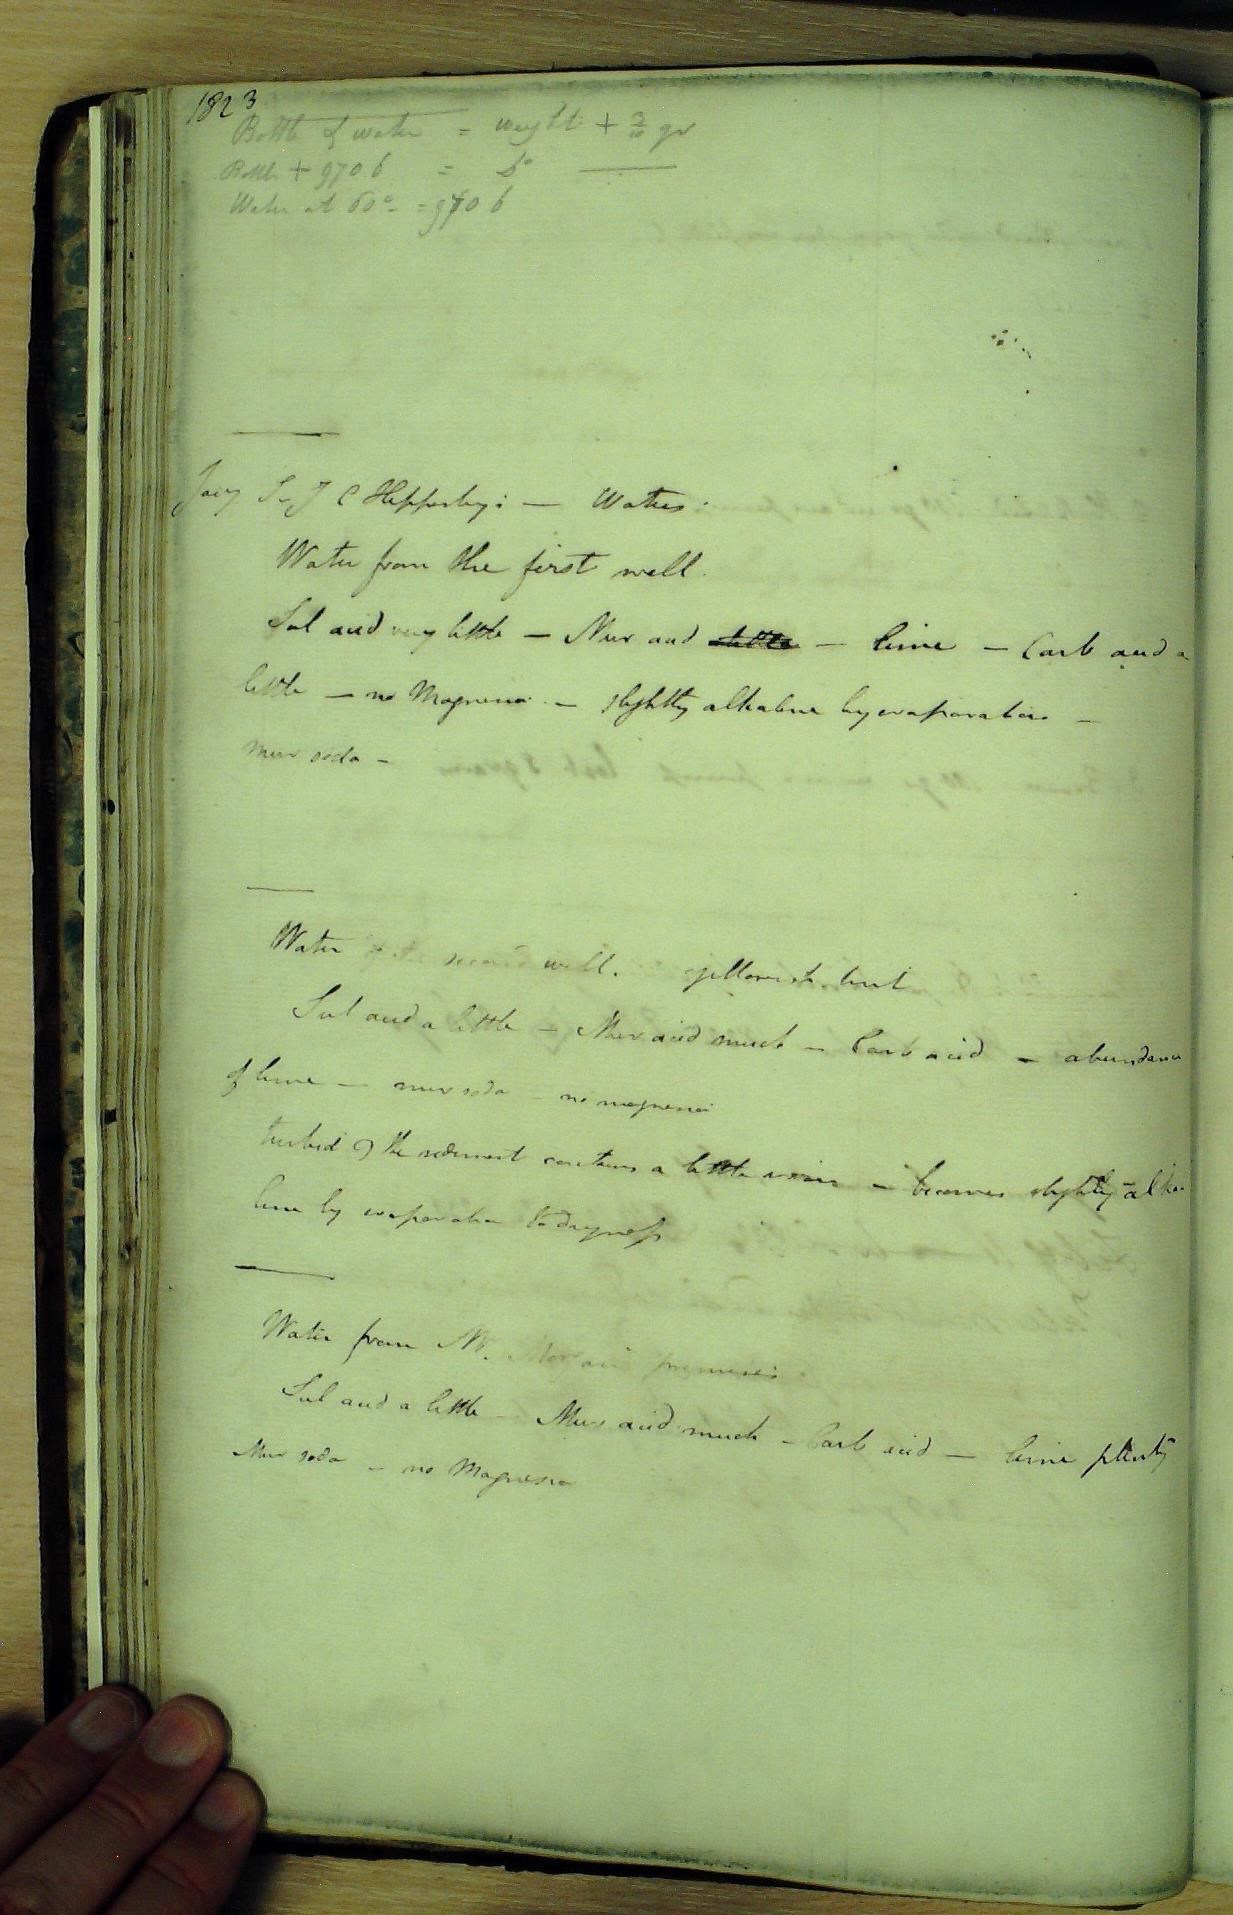 1823
Bottle of water = weight + 3/10 gr
Bottle + 970.6 = Do
Water at 60° = 970.6
Sir J C Hippesley's — Waters.
Water from the first well.
Sul acid very little — Mur acid — lime — Carb acid a
little — no Magnesia — slightly alkaline by evaporation —
mur soda —
Water of the second well. yellowish tint
Sul acid a little — Mur acid much — Carb acid — abundance
of lime — mur soda — no magnesia
turbid & the sediment contains a little iron — becomes slightly alka-
line by evaporation to dryness
Water from Mr. premises
Sul acid a little — Mur acid much — Carb acid — lime plenty
Mur soda — no Magnesia